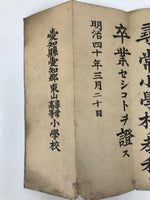 尋常小學校
卒業セシコトヲ證ス
明治四十年三月二十日
愛知縣愛知郡東山尋常高等小學校